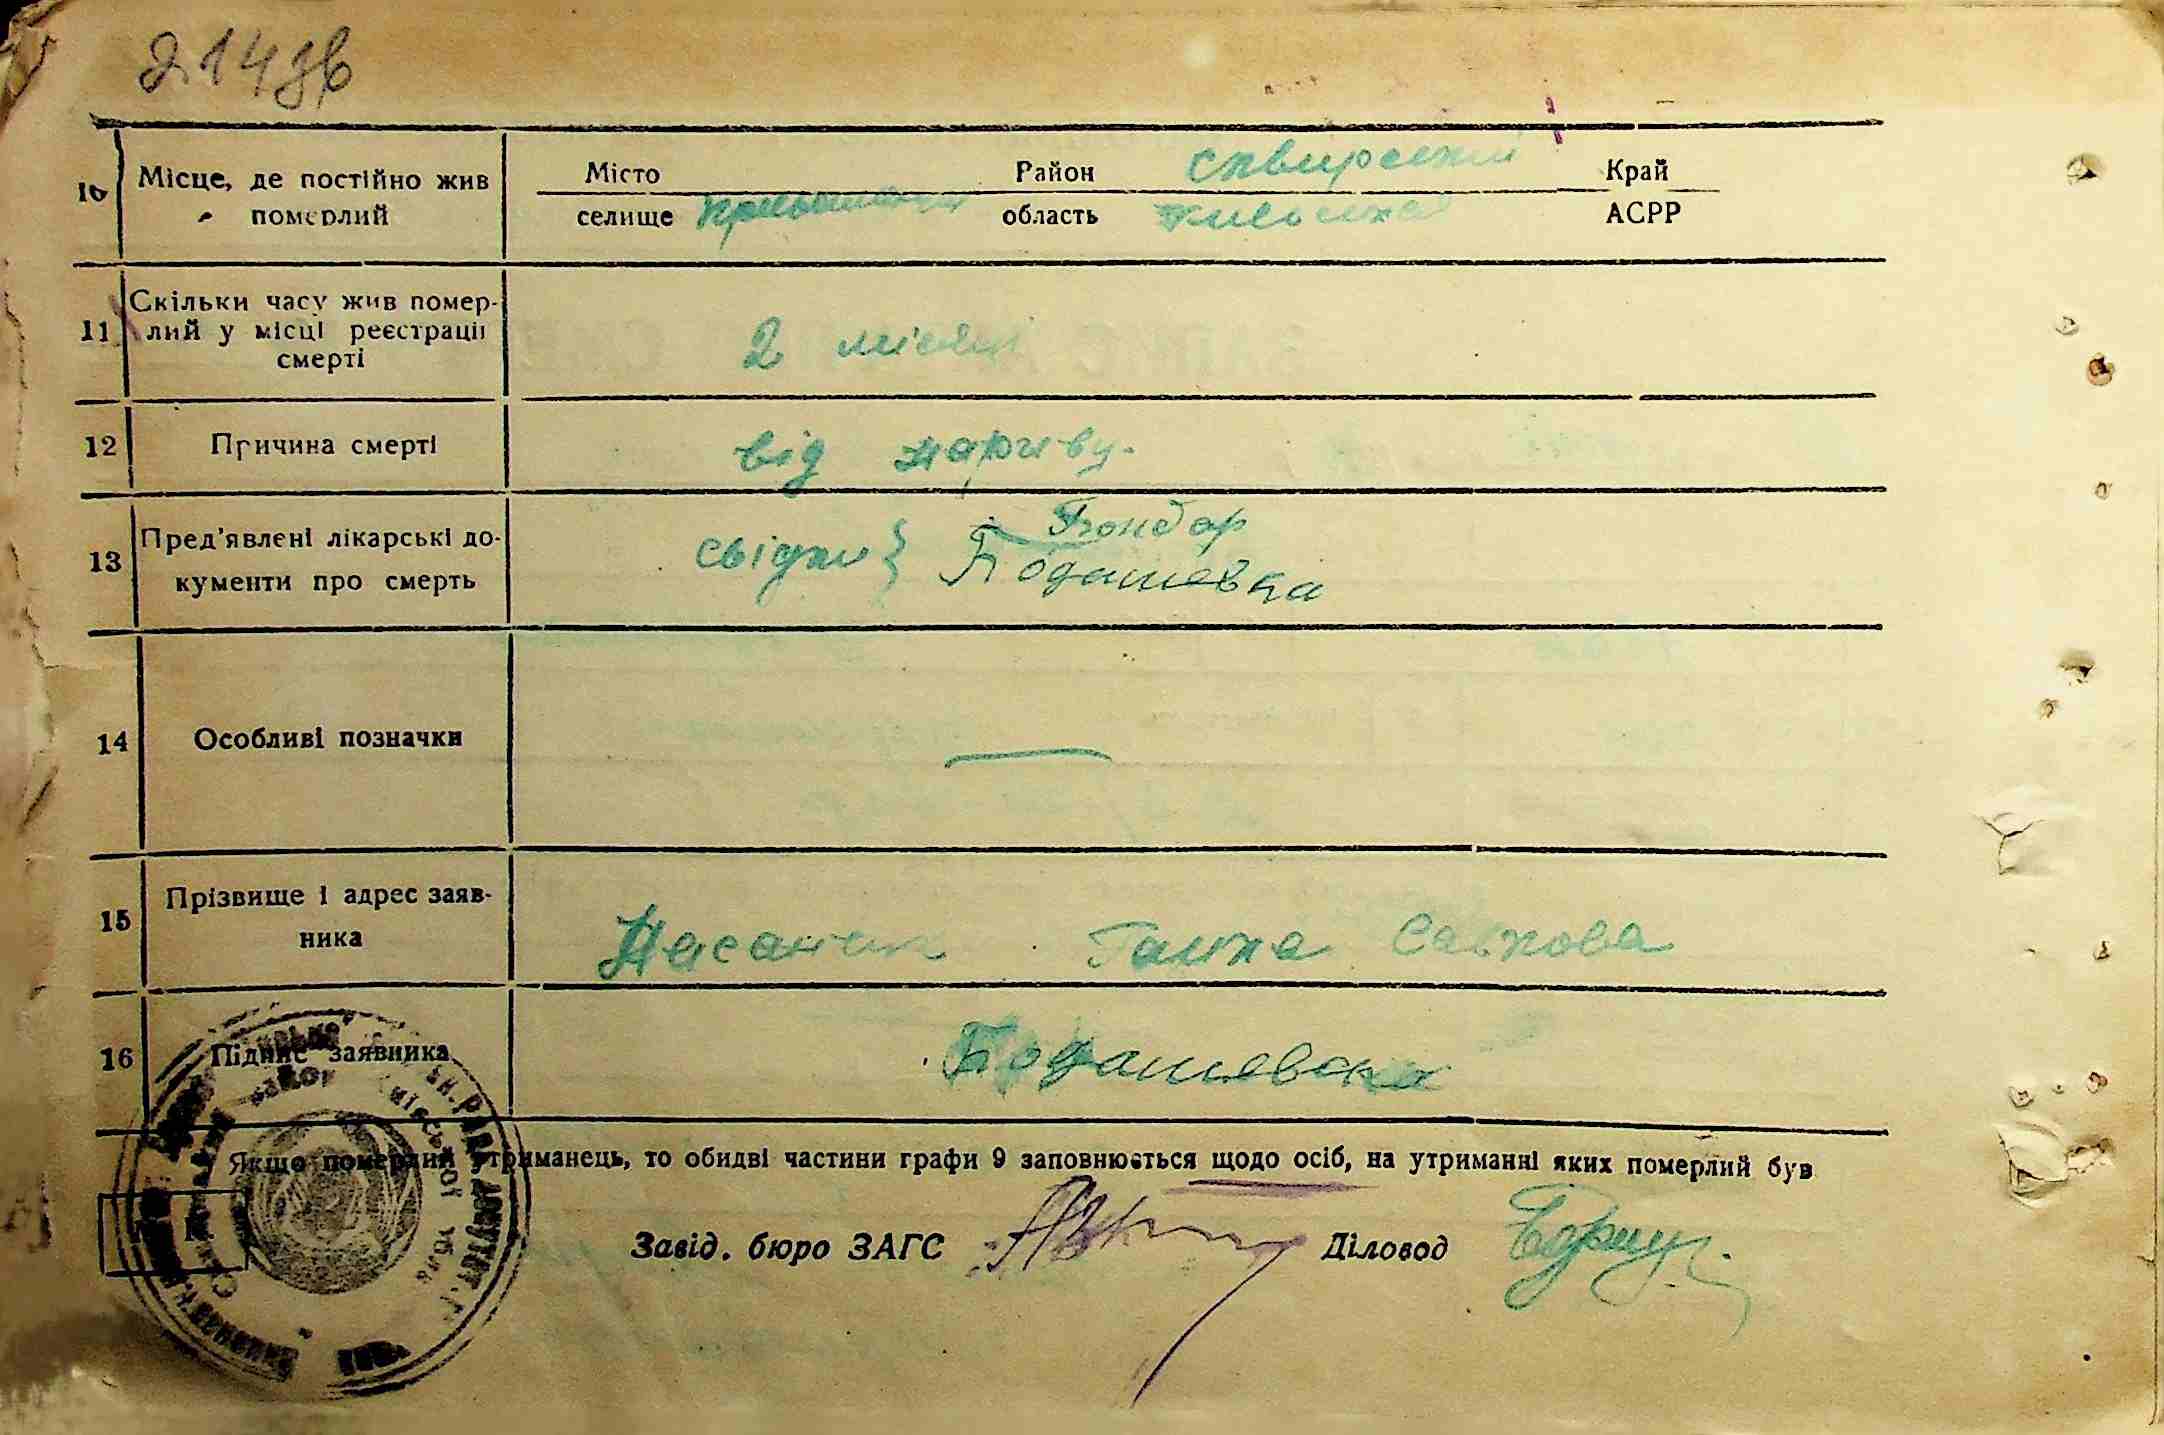 214зв
10 Місце, де постійно жив померлий
Місто Район Сквирський Край
селище область Київська АСРР
11 Скільки часу жив помер-
лий у місці реєстрації
смерті
2 місяці
12 Причина смерті
від нариву.
13 Пред'явлені лікарські до-
кументи про смерть
свідки } Бондар
Бодашевска
14 Особливі позначки
—
15 Прізвище і адрес заяв-
ника
Ганна Савкова
16 Підпис заявника
Бодашевска
Якщо померлий утриманець, то обидві частини графи 9 заповнюється щодо осіб, на утриманні яких померлий був
Завід. бюро ЗАГС Діловод